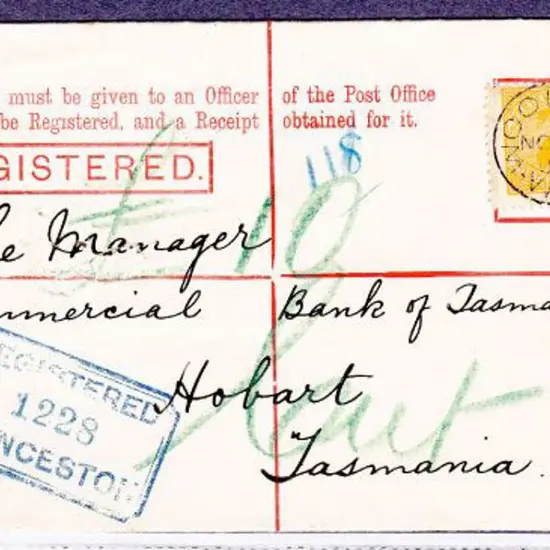 must be given to an Officer of the Post Office
be Registered, and a Receipt obtained for it.
GISTERED.
118
10
he Manager
ommercial Bank of Tasma
Hobart
Tasmania.
EGISTERED
1228
NCESTON